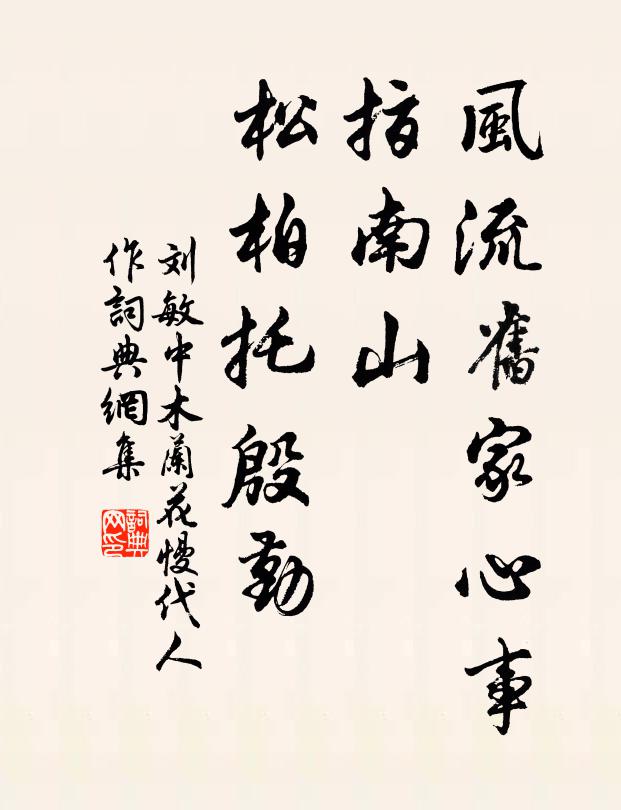 風流舊家心事
指南山
松柏托殷勤
刘敏中木蘭花慢代人
作詞典網集
詞典
网印